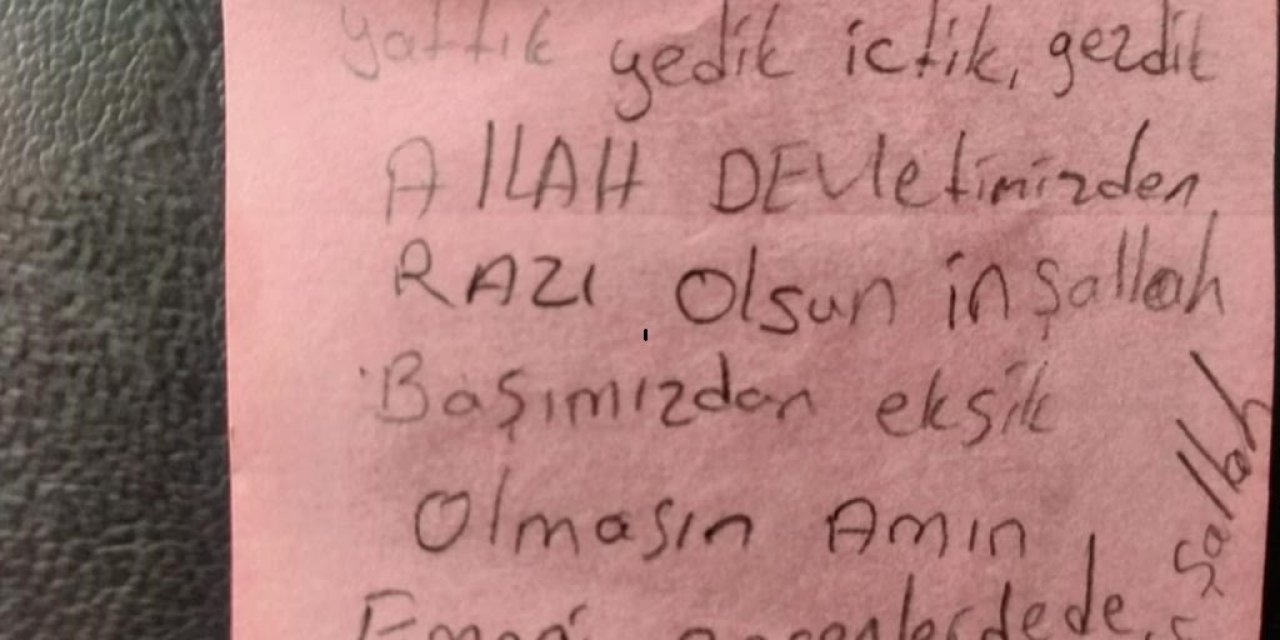 yattık yedik içtik, gezdik
AllAH DEVletimizden
RAZI Olsun inşallah
Başımızdan eksik
Olmasın Amın
şallah